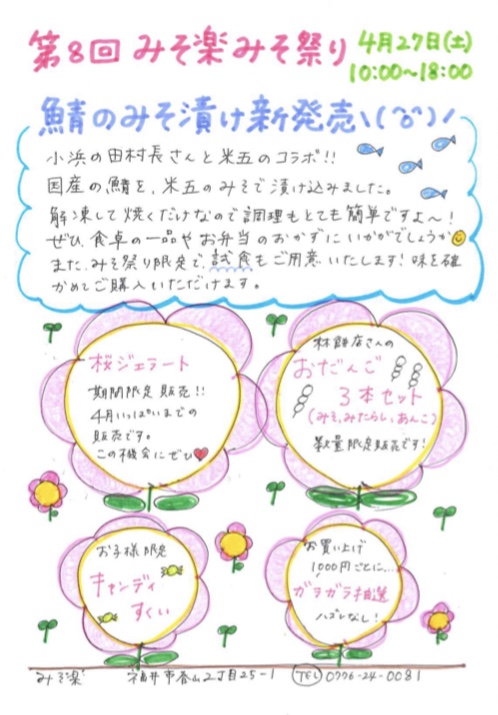 第8回 みそ楽みそ祭り
4月27日(土)
10:00~18:00
鯖のみそ漬け新発売ヽ(^o^)ノ
小浜の田村長さんと米五のコラボ!!
国産の鯖を、米五のみそで漬け込みました。
解凍して焼くだけなので調理もとても簡単ですよ~!
ぜひ、食卓の一品やお弁当のおかずにいかがでしょうか
また、みそ祭り限定で、試食もご用意いたします!味を確
かめてご購入いただけます。
桜ジェラート
期間限定販売!!
4月いっぱいまでの
販売です。
この機会にぜひ♥
林餅店さんの
おだんご
3本セット
(みそ,みたらし,あんこ)
数量限定販売です!
お子様限定
キャンディ
すくい
お買い上げ
1,000円ごとに...
ガラガラ抽選
ハズレなし!
みそ楽 福井市春山2丁目25-1 TEL 0776-24-0081